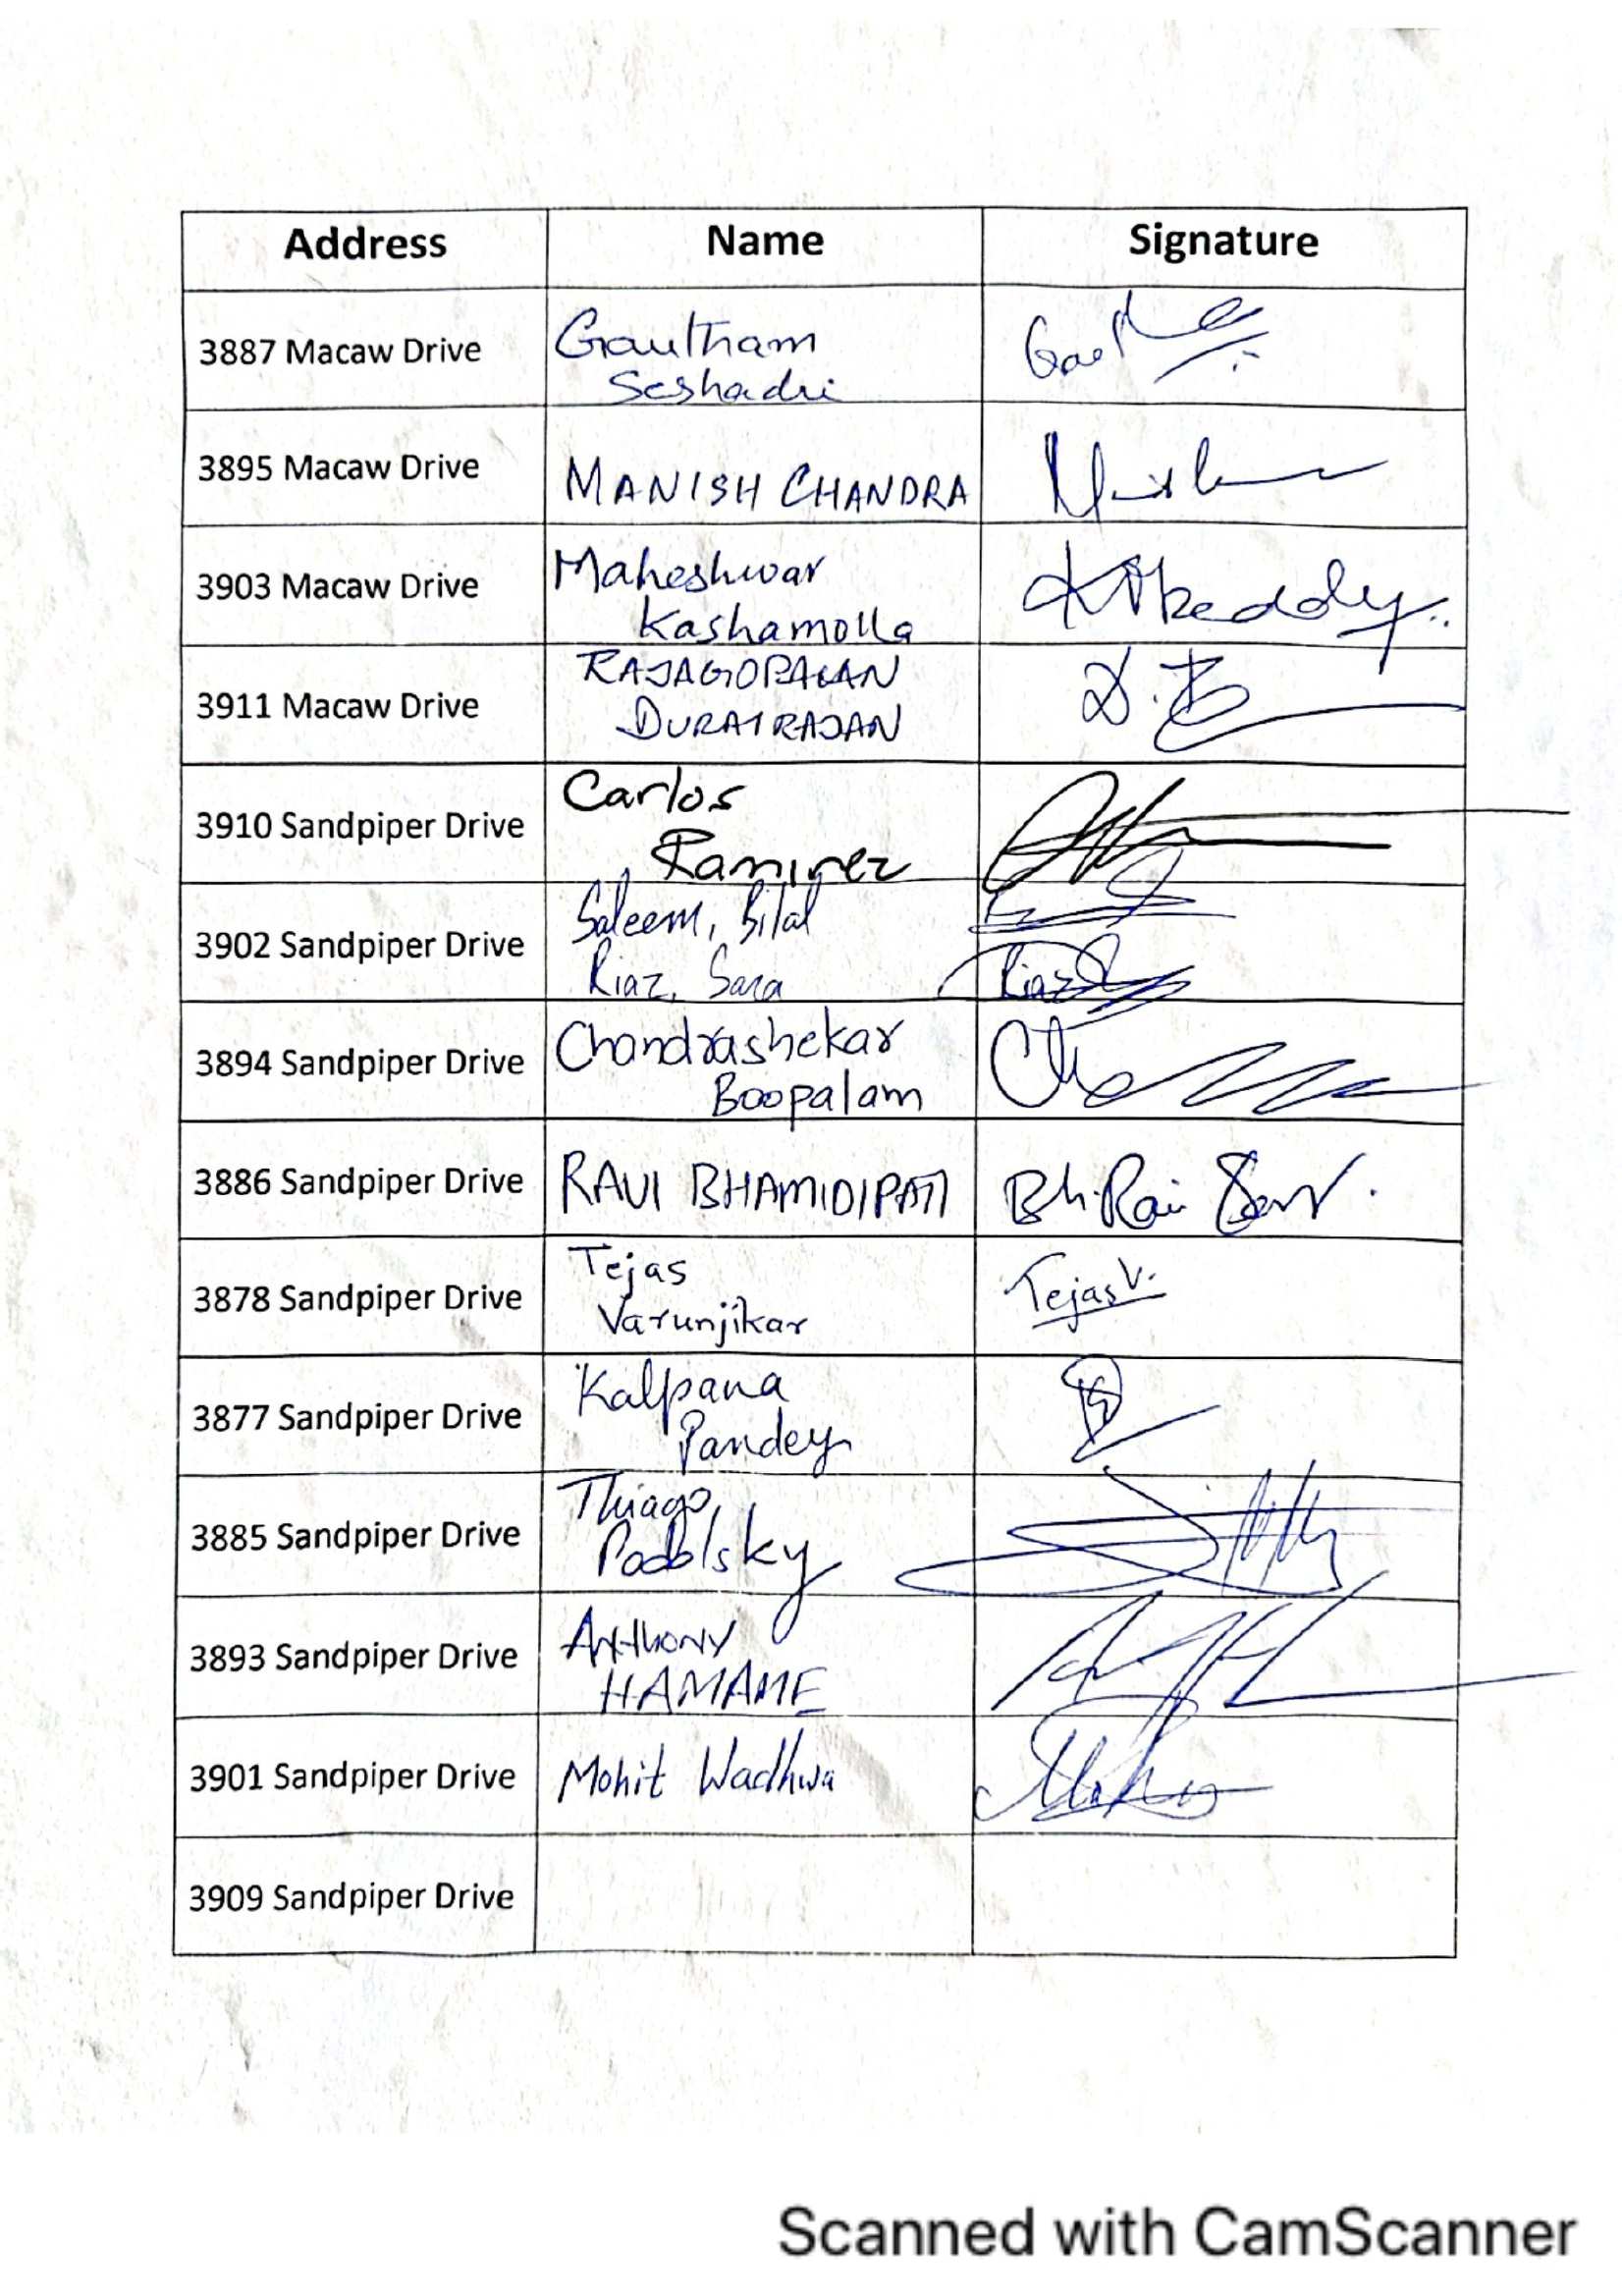 Address Name Signature
3887 Macaw Drive
Gautham
Seshadri
3895 Macaw Drive
MANISH CHANDRA
3903 Macaw Drive
Maheshwar
Kashamolla
3911 Macaw Drive
RAJAGOPALAN
DURAIRAJAN
3910 Sandpiper Drive
Carlos
Ramirez
3902 Sandpiper Drive
Saleem, Bilal
Riaz, Sara
Riaz
3894 Sandpiper Drive
Chandrashekar
Boopalam
3886 Sandpiper Drive
RAVI BHAMIDIPATI
3878 Sandpiper Drive
Tejas
Varunjikar
Tejas V.
3877 Sandpiper Drive
Kalpana
Pandey
3885 Sandpiper Drive
Thiago
Podolsky
3893 Sandpiper Drive
Anthony
HAMAME
3901 Sandpiper Drive
Mohit Wadhwa
3909 Sandpiper Drive
Scanned with CamScanner